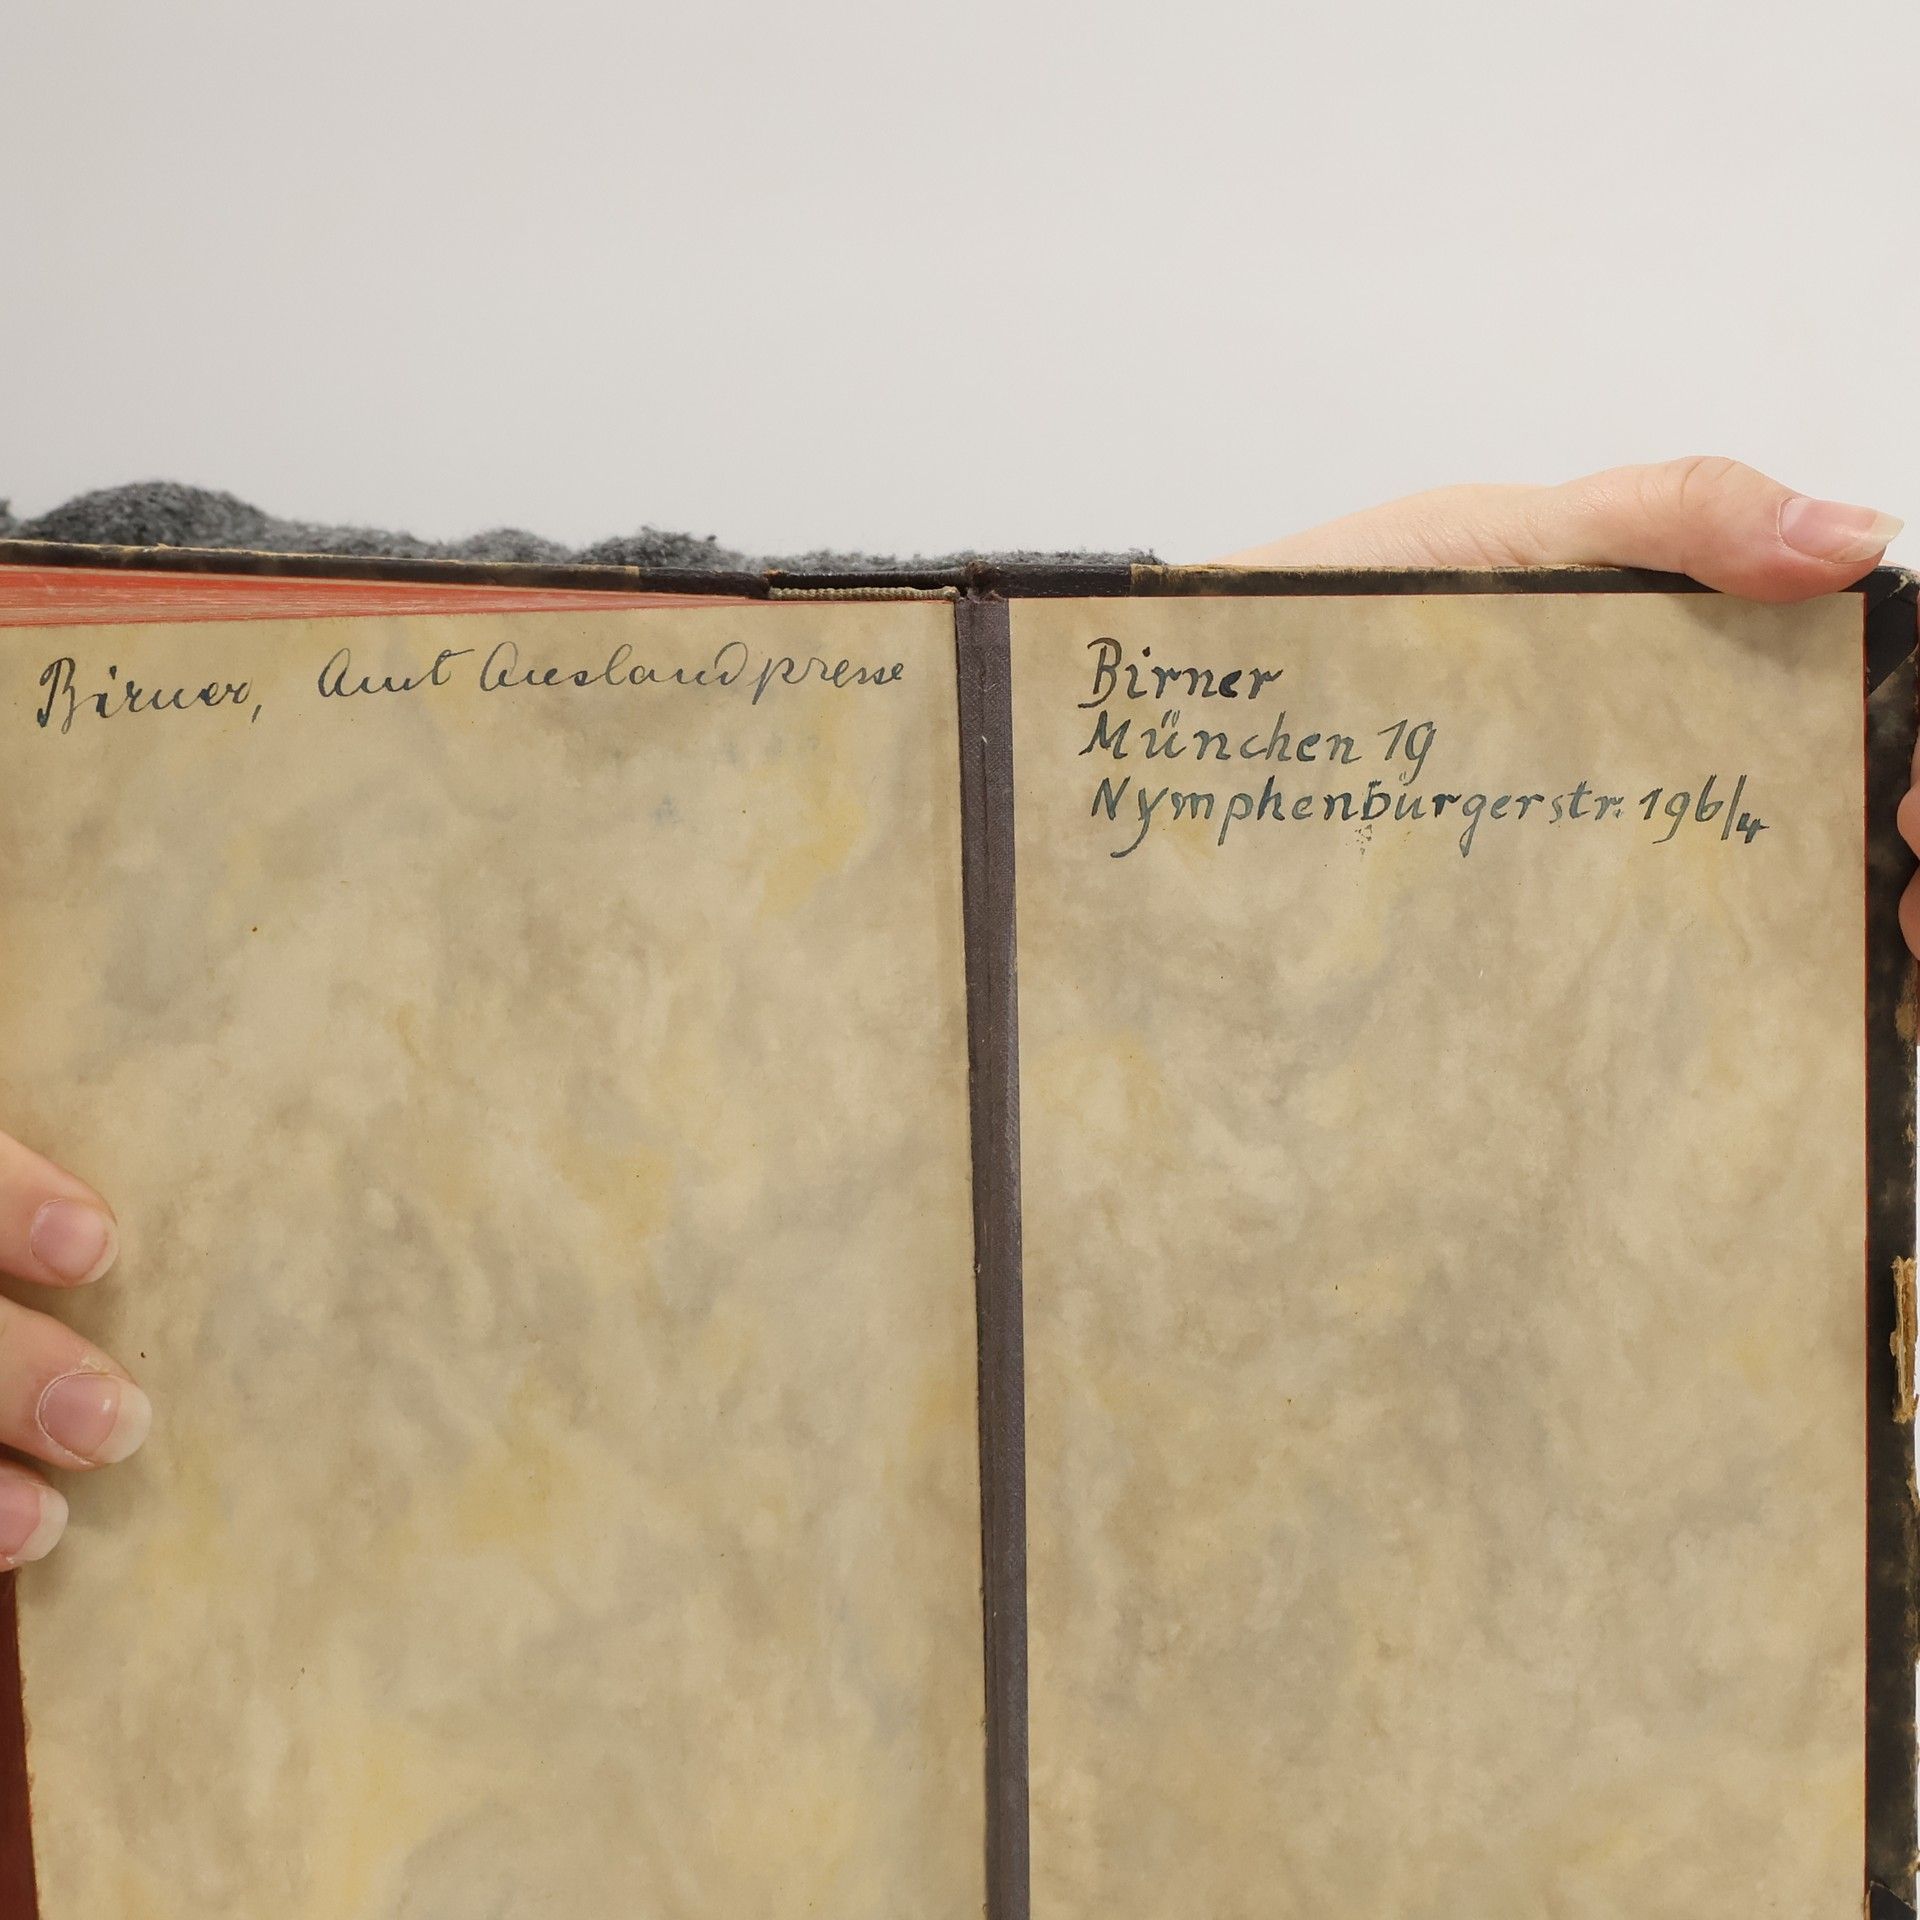 Birner, Amt Auslandpresse
Birner
München 19
Nymphenburgerstr. 196/4